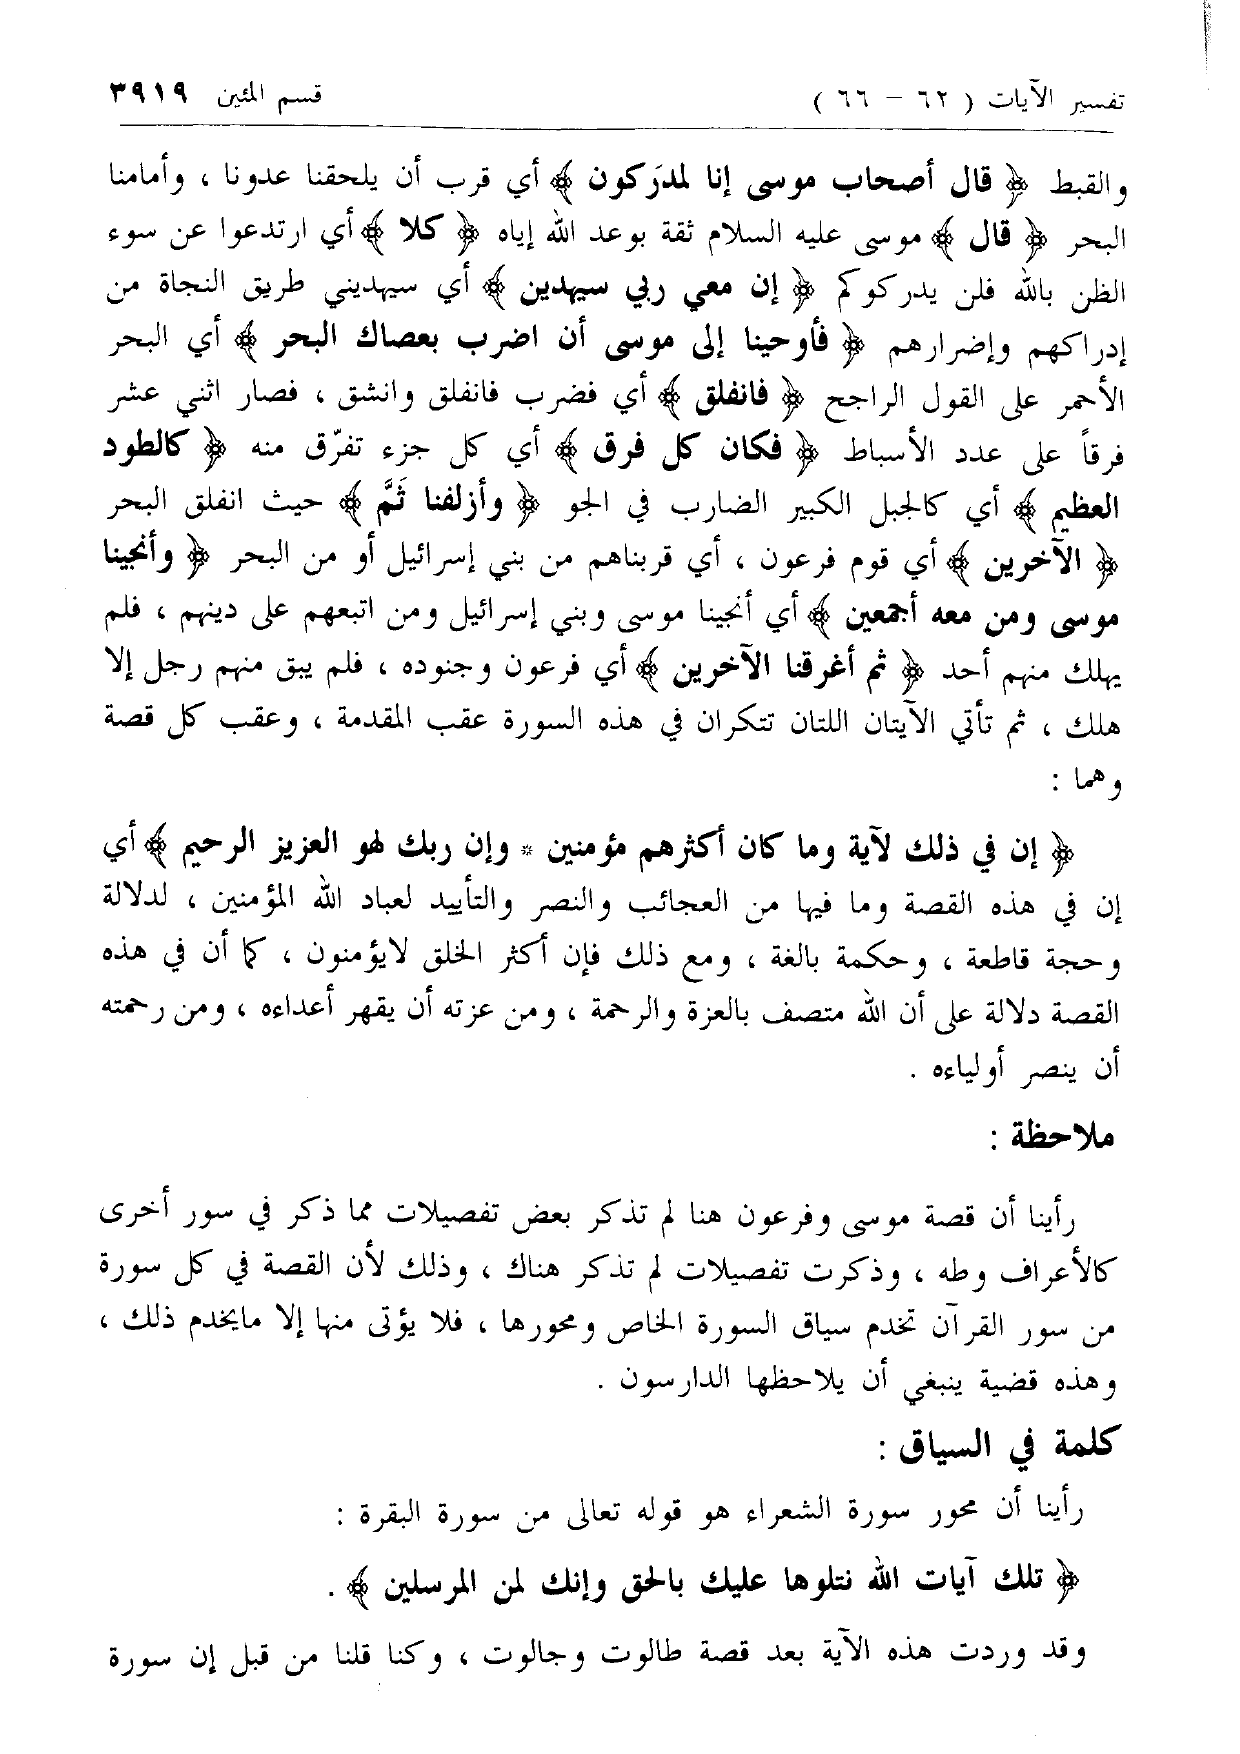 تفسير الآيات ( ٦٢ – ٦٦ ) قسم المئين ٣٩١٩
والقبط ﴿ قال أصحاب موسى إنا لمدرَكون ﴾ أي قرب أن يلحقنا عدونا ، وأمامنا
البحر ﴿ قال ﴾ موسى عليه السلام ثقة بوعد الله إياه ﴿ كلا ﴾ أي ارتدعوا عن سوء
الظن بالله فلن يدركوكم ﴿ إن معي ربي سيهدين ﴾ أي سيهديني طريق النجاة من
إدراكهم وإضرارهم ﴿ فأوحينا إلى موسى أن اضرب بعصاك البحر ﴾ أي البحر
الأحمر على القول الراجح ﴿ فانفلق ﴾ أي فضرب فانفلق وانشق ، فصار اثني عشر
فرقاً على عدد الأسباط ﴿ فكان كل فرق ﴾ أي كل جزء تفرّق منه ﴿ كالطود
العظيم ﴾ أي كالجبل الكبير الضارب في الجو ﴿ وأزلفنا ثَمَّ ﴾ حيث انفلق البحر
﴿ الآخرين ﴾ أي قوم فرعون ، أي قربناهم من بني إسرائيل أو من البحر ﴿ وأنجينا
موسى ومن معه أجمعين ﴾ أي أنجينا موسى وبني إسرائيل ومن اتبعهم على دينهم ، فلم
يهلك منهم أحد ﴿ ثم أغرقنا الآخرين ﴾ أي فرعون وجنوده ، فلم يبق منهم رجل إلا
هلك ، ثم تأتي الآيتان اللتان تتكران في هذه السورة عقب المقدمة ، وعقب كل قصة
وهما :
﴿ إن في ذلك لآية وما كان أكثرهم مؤمنين * وإن ربك لهو العزيز الرحيم ﴾ أي
إن في هذه القصة وما فيها من العجائب والنصر والتأييد لعباد الله المؤمنين ، لدلالة
وحجة قاطعة ، وحكمة بالغة ، ومع ذلك فإن أكثر الخلق لايؤمنون ، كما أن في هذه
القصة دلالة على أن الله متصف بالعزة والرحمة ، ومن عزته أن يقهر أعداءه ، ومن رحمته
أن ينصر أولياءه .
ملاحظة :
رأينا أن قصة موسى وفرعون هنا لم تذكر بعض تفصيلات مما ذكر في سور أخرى
كالأعراف وطه ، وذكرت تفصيلات لم تذكر هناك ، وذلك لأن القصة في كل سورة
من سور القرآن تخدم سياق السورة الخاص ومحورها ، فلا يؤتى منها إلا مايخدم ذلك ،
وهذه قضية ينبغي أن يلاحظها الدارسون .
كلمة في السياق :
رأينا أن محور سورة الشعراء هو قوله تعالى من سورة البقرة :
﴿ تلك آيات الله نتلوها عليك بالحق وإنك لمن المرسلين ﴾ .
وقد وردت هذه الآية بعد قصة طالوت وجالوت ، وكنا قلنا من قبل إن سورة